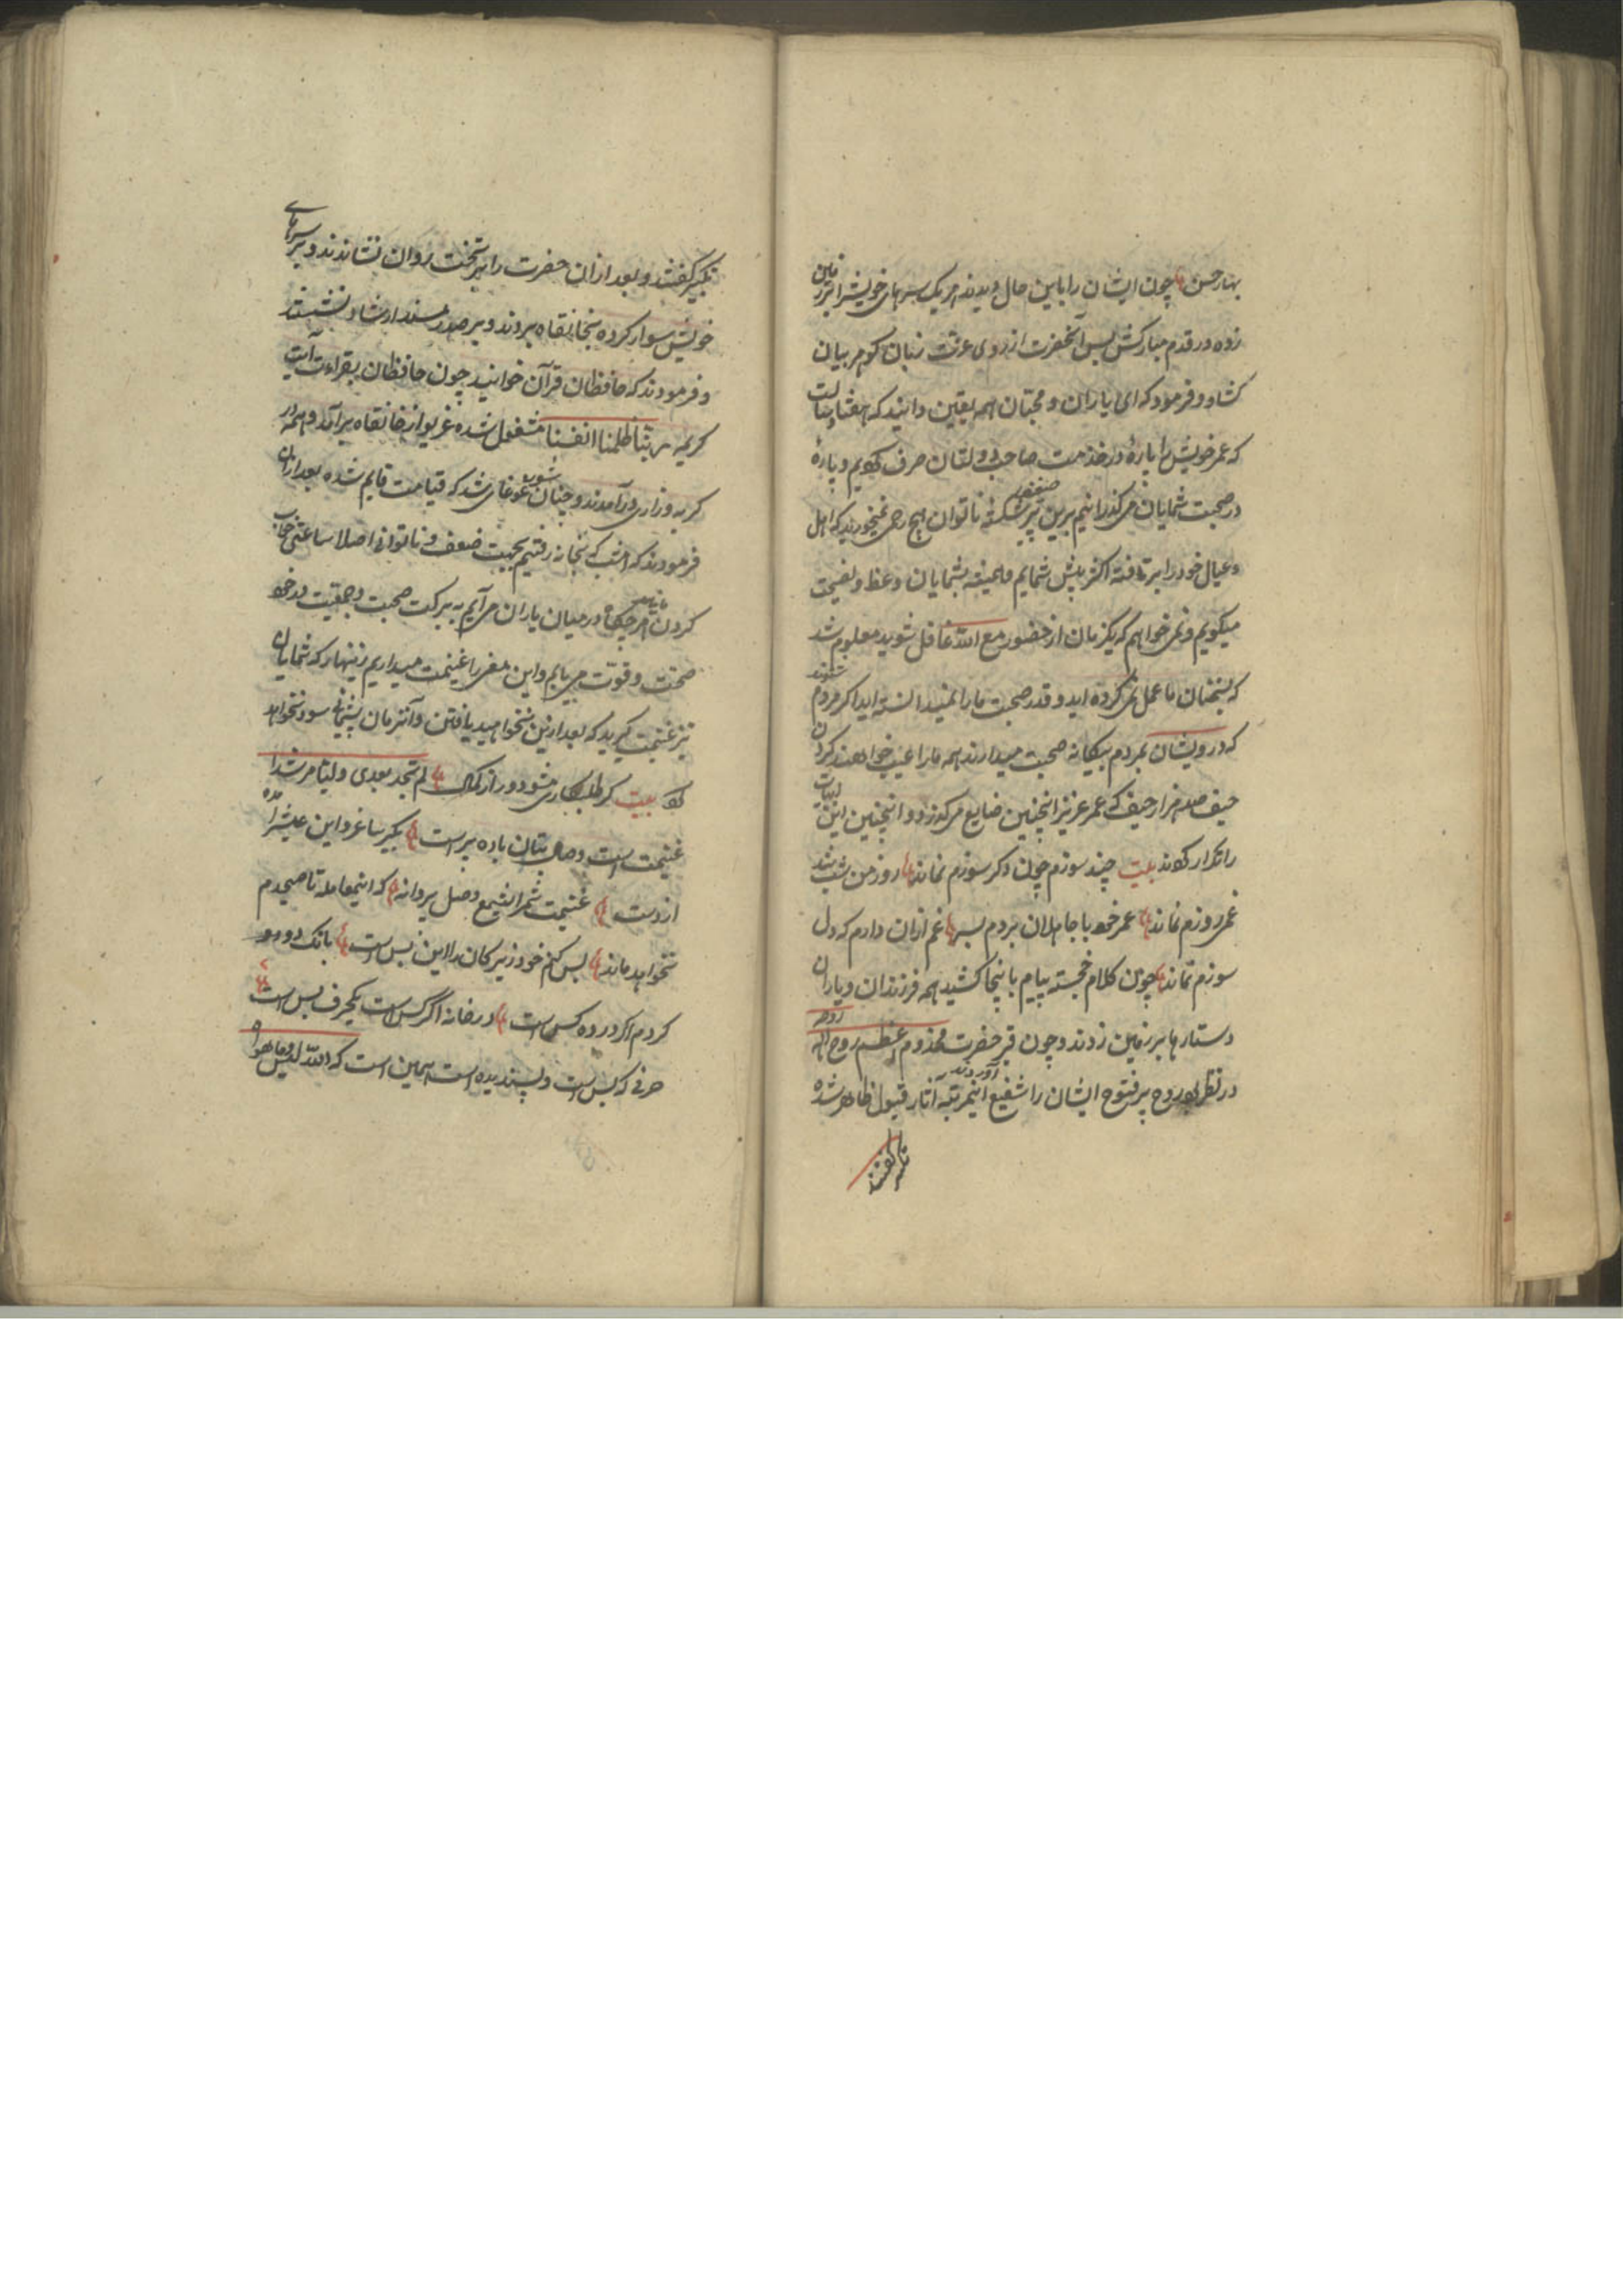 بهار حسن چون ایشان را باین حال دیدند هر یک سرهای خویش را بر زمین
زده در قدم مبارکش پس آنحضرت از روی عزت زبان گوهر بیان
گشاد و فرمود که ای یاران و محبان همه یقین دانید که هفتاد سالست
که عمر خویش را پارهٔ در خدمت صاحب دولتان صرف کردیم و پارهٔ
در صحبت شمایان می گذرانیم برین پیر ضعیف شکسته ناتوان هیچ رحمی نمیخورید که اهل
و عیال خود را بر تافته اکثر پیش شمایم و همیشه بشمایان وعظ و نصیحت
میگویم و نمی خواهم که یکزمان از حضور مع الله غافل شوید معلوم شد
که بسخنان ما عمل نمی کرده اید و قدر صحبت ما را نمیدانسته اید اگر مردم شنوند
که درویشان بمردم بیگانه صحبت میدارند همه ما را عیب خواهند کردن
حیف صد هزار حیف که عمر عزیز اینچنین ضایع می گذرد و اینچنین این ابیات
را تکرار کردند بیت چند سوزم چون دگر سوزم نماند روز من شب شد
غمی روزم نماند عمر خود با جاهلان بردم بسر غم ازان دارم که دل
سوزم نماند چون کلام خجسته پیام باینجا کشید همه فرزندان و یاران
دستارها بر زمین زدند و چون قبر حضرت مخدوم اعظم روح الله روحه
در نظر بود روح پر فتوح ایشان را شفیع آوردند اینمرتبه آثار قبول ظاهر شده
گفتند
تکبیر گفتند و بعد ازان حضرت را بر تخت روان نشاندند و بر سرهای
خویش سوار کرده بخانقاه بردند و بر صدر مسند ارشاد نشستند
و فرمودند که حافظان قرآن خوانید چون حافظان بقراءت آیت
کریمه ربنا ظلمنا انفسنا مشغول شده غریو از خانقاه برآمد و همه در
گریه و زاری درآمدند و چنان شور و غوغای شد که قیامت قایم شده بعد ازان
فرمودند که امشب که بخانه رفتیم بجهت ضعف و ناتوانی اصلا ساعتی خواب
کردن هرچگاه در میان یاران می آیم به برکت صحبت و جمعیت در خود
صحت و قوت می یابم و این معنی را غنیمت میداریم زینهار که شمایان
نیز غنیمت گیرید که بعد ازین نخواهید یافتن و آنزمان پشیمانی سود نخواهد
کرد بیت گر طلبکاری مشو دور از کمال لم تجد بعدی ولیا مرشدا
غنیمت است وصال بتان باده پرست بگیر ساغر و این عیش را مده
از دست غنیمت شمر ای شمع وصل پروانه که اینمعامله تا صبحدم
نخواهد ماند بس کنم خود زیرکان را این بس است بانگ دو
کردم اگر در ده کس است در خانه اگر کس است یکحرف بس است
حرفی که بس است و پسندیده است همین است که الله لیس ما هوا